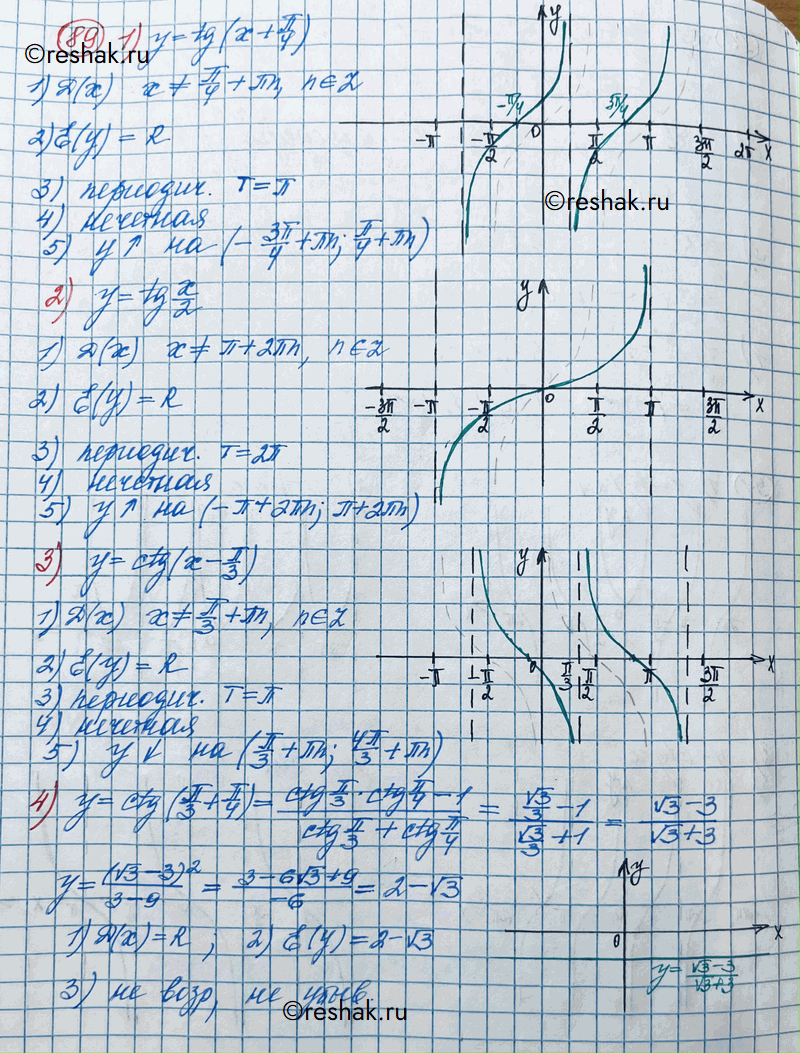 89 1) y = tg(x + π/4)
©reshak.ru
1) D(x) x ≠ π/4 + πn, n ∈ Z
2) E(y) = R
3) периодич. T = π
4) нечетная
5) y ↑ на (- 3π/4 + πn; π/4 + πn)
y
-π/4 3π/4
-π -π/2 0 π/2 π 3π/2 2π x
©reshak.ru
2) y = tg x/2
1) D(x) x ≠ π + 2πn, n ∈ Z
2) E(y) = R
3) периодич. T = 2π
4) нечетная
5) y ↑ на (-π + 2πn; π + 2πn)
y
-3π/2 -π -π/2 0 π/2 π 3π/2 x
3) y = ctg(x - π/3)
1) D(x) x ≠ π/3 + πn, n ∈ Z
2) E(y) = R
3) периодич. T = π
4) нечетная
5) y ↓ на (π/3 + πn; 4π/3 + πn)
y
-π -π/2 0 π/3 π/2 π 3π/2 x
4) y = ctg(π/3 + π/4) = (ctg π/3 · ctg π/4 - 1)/(ctg π/3 + ctg π/4) = (√3/3 - 1)/(√3/3 + 1) = (√3 - 3)/(√3 + 3)
y = (√3 - 3)²/(3 - 9) = (3 - 6√3 + 9)/(-6) = 2 - √3
1) D(x) = R ; 2) E(y) = 2 - √3
3) не возр, не убыв
y
0 x
y = (√3 - 3)/(√3 + 3)
©reshak.ru